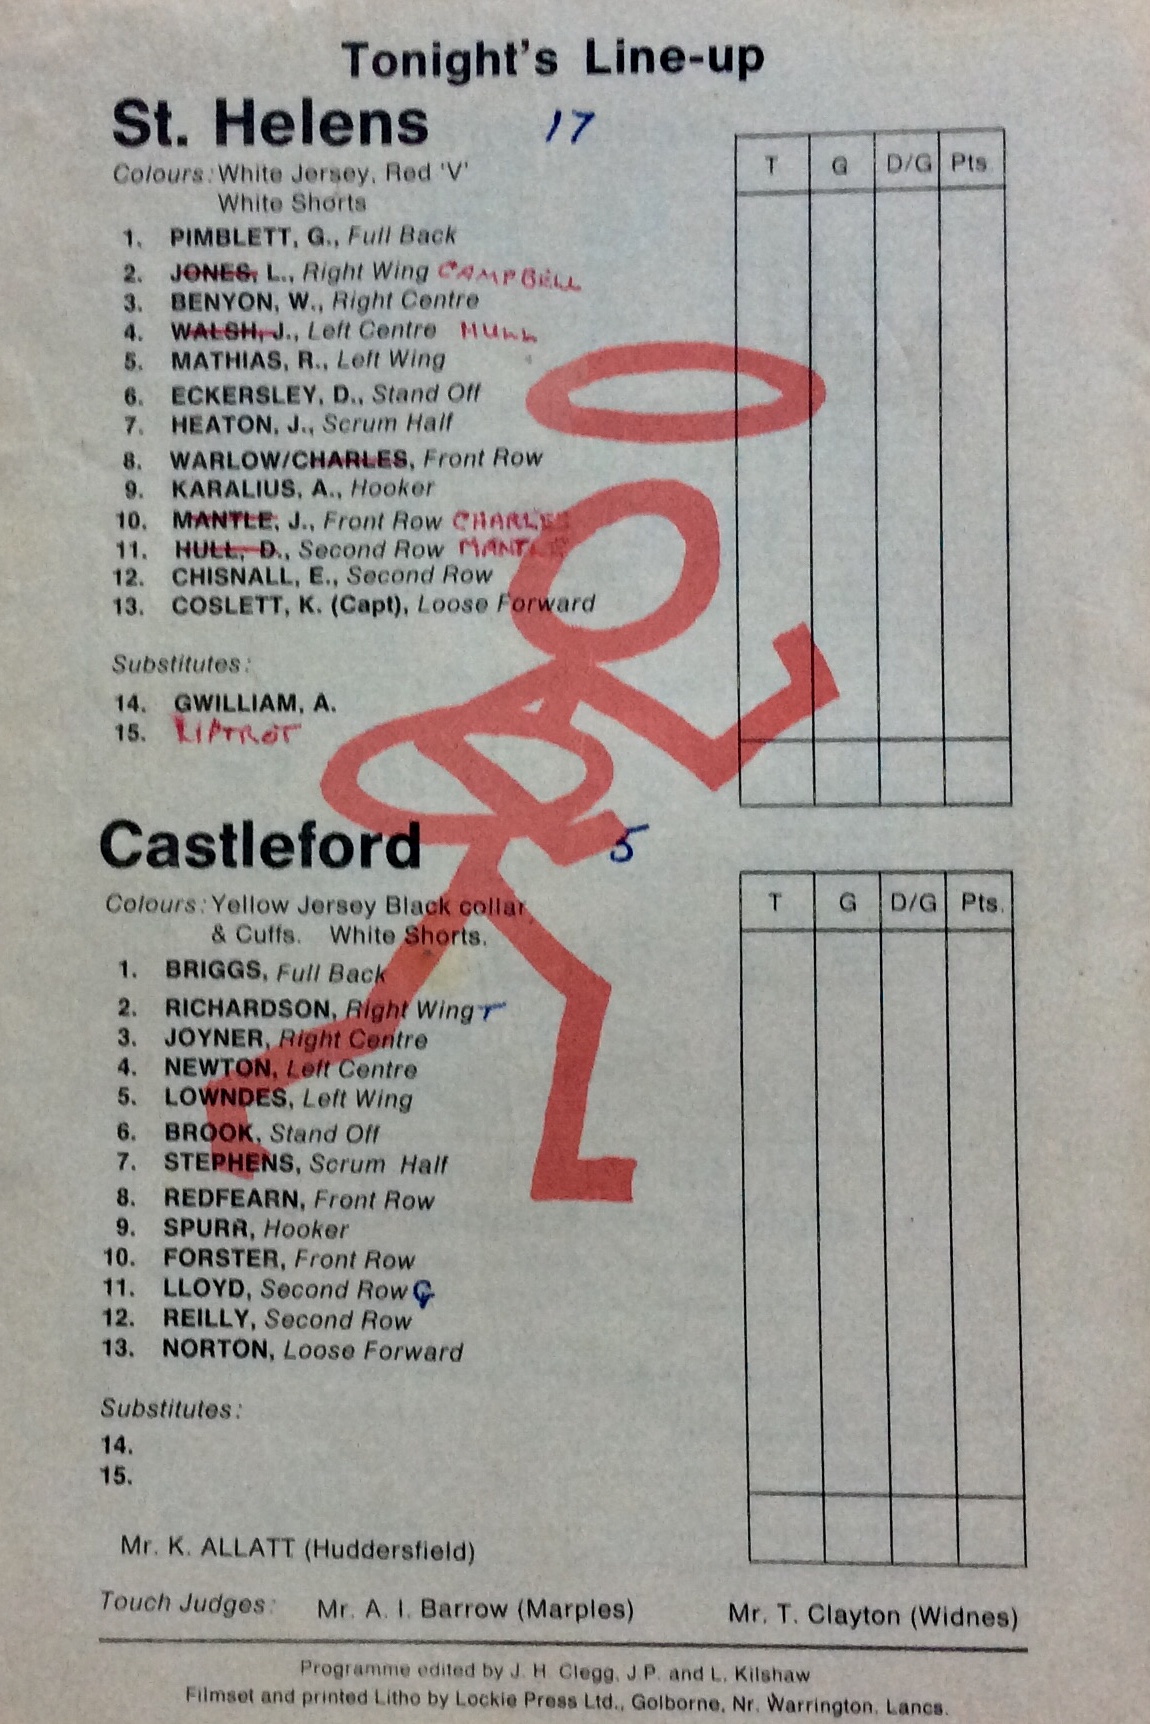 Tonight's Line-up
St. Helens 17
Colours: White Jersey, Red 'V'
White Shorts
T G D/G Pts
1. PIMBLETT, G., Full Back
2. JONES, L., Right Wing CAMPBELL
3. BENYON, W., Right Centre
4. WALSH, J., Left Centre HULL
5. MATHIAS, R., Left Wing
6. ECKERSLEY, D., Stand Off
7. HEATON, J., Scrum Half
8. WARLOW/CHARLES, Front Row
9. KARALIUS, A., Hooker
10. MANTLE, J., Front Row CHARLES
11. HULL, D., Second Row MANTLE
12. CHISNALL, E., Second Row
13. COSLETT, K. (Capt), Loose Forward
Substitutes:
14. GWILLIAM, A.
15. LIPTROT
Castleford 5
Colours: Yellow Jersey Black collar
& Cuffs. White Shorts.
T G D/G Pts.
1. BRIGGS, Full Back
2. RICHARDSON, Right Wing T
3. JOYNER, Right Centre
4. NEWTON, Left Centre
5. LOWNDES, Left Wing
6. BROOK, Stand Off
7. STEPHENS, Scrum Half
8. REDFEARN, Front Row
9. SPURR, Hooker
10. FORSTER, Front Row
11. LLOYD, Second Row G
12. REILLY, Second Row
13. NORTON, Loose Forward
Substitutes:
14.
15.
Mr. K. ALLATT (Huddersfield)
Touch Judges: Mr. A. I. Barrow (Marples) Mr. T. Clayton (Widnes)
Programme edited by J. H. Clegg, J.P. and L. Kilshaw
Filmset and printed Litho by Lockie Press Ltd., Golborne, Nr. Warrington, Lancs.